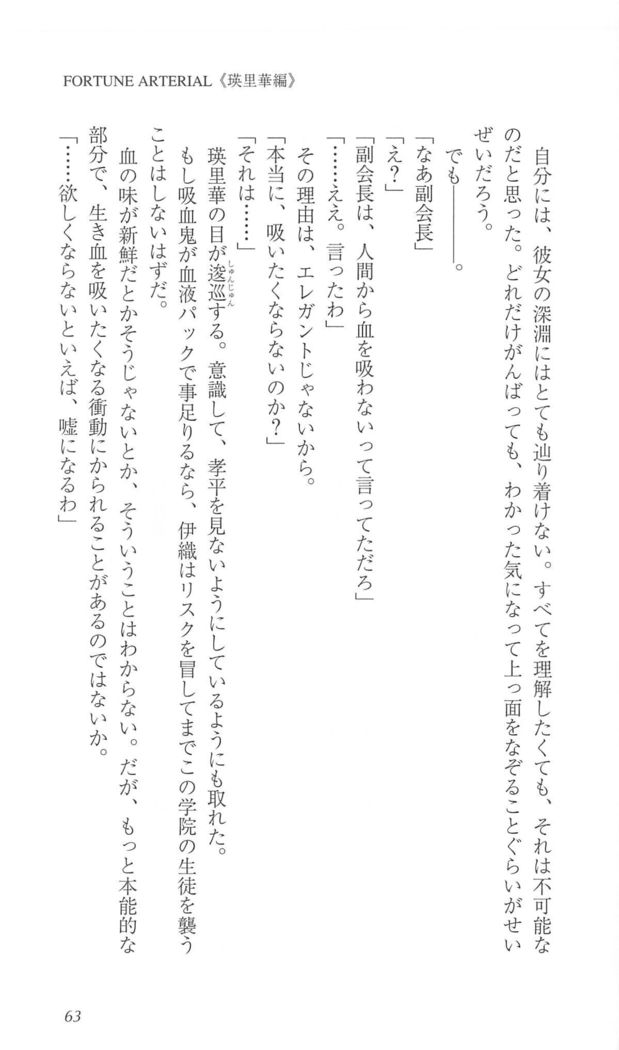 FORTUNE ARTERIAL《瑛里華編》
　自分には、彼女の深淵にはとても辿り着けない。すべてを理解したくても、それは不可能な
のだと思った。どれだけがんばっても、わかった気になって上っ面をなぞることぐらいがせい
ぜいだろう。
　でも――。
「なあ副会長」
「え？」
「副会長は、人間から血を吸わないって言ってただろ」
「……ええ。言ったわ」
　その理由は、エレガントじゃないから。
「本当に、吸いたくならないのか？」
「それは……」
　瑛里華の目が逡巡する。意識して、孝平を見ないようにしているようにも取れた。
しゅんじゅん
　もし吸血鬼が血液パックで事足りるなら、伊織はリスクを冒してまでこの学院の生徒を襲う
ことはしないはずだ。
　血の味が新鮮だとかそうじゃないとか、そういうことはわからない。だが、もっと本能的な
部分で、生き血を吸いたくなる衝動にかられることがあるのではないか。
「……欲しくならないといえば、嘘になるわ」
63